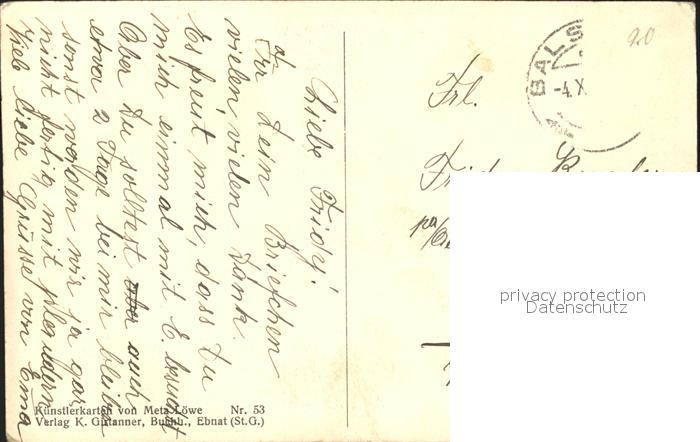 Liebe Fridy!
Für Dein Briefchen
vielen vielen Dank.
Es freut mich, dass Du
mich einmal mit E. besuchst
Aber Du solltest aber auch
etwa 2 Tage bei mir bleiben
sonst werden wir ja gar
nicht fertig mit plaudern
Viele liebe Grüsse von Ema
Frl.
BALS
-4.X
20
privacy protection
Datenschutz
Künstlerkarten von Meta Löwe Nr. 53
Verlag K. Gutanner, Buchh., Ebnat (St.G.)